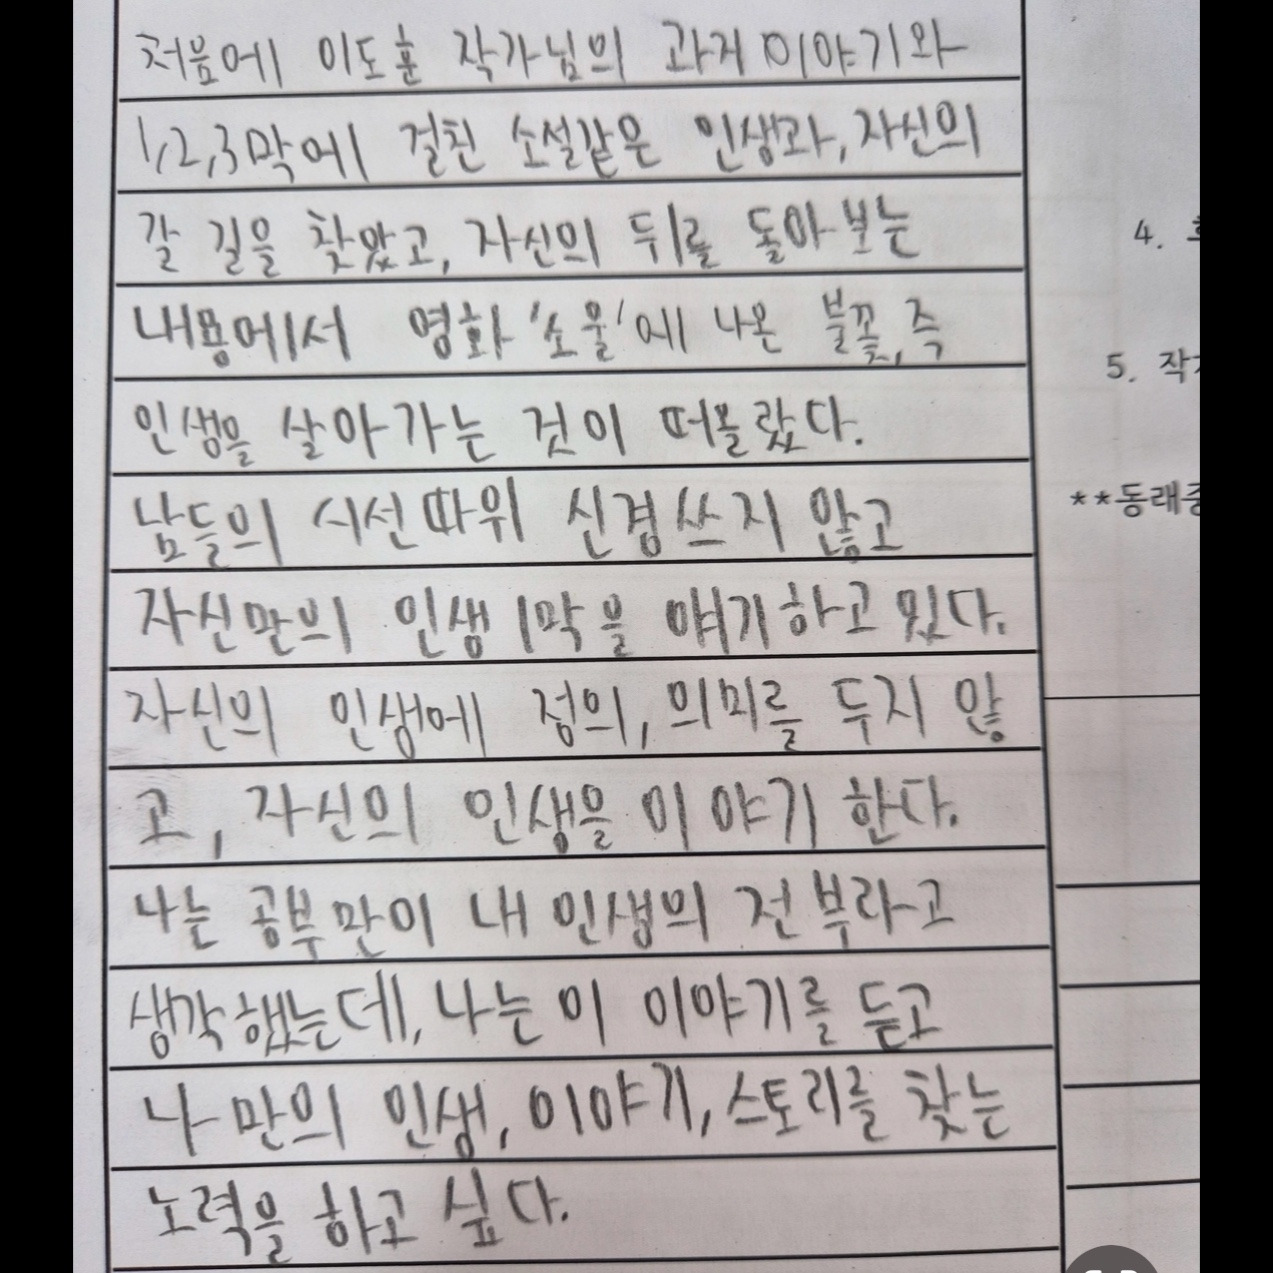 처음에 이도훈 작가님의 과거 이야기와
1,2,3막에 걸친 소설같은 인생과, 자신의
갈 길을 찾았고, 자신의 뒤를 돌아보는
내용에서 영화 '소울'에 나온 불꽃, 즉
인생을 살아가는 것이 떠올랐다.
남들의 시선따위 신경쓰지 않고
자신만의 인생 1막을 얘기하고 있다.
자신의 인생에 정의, 의미를 두지 않
고, 자신의 인생을 이야기 한다.
나는 공부만이 내 인생의 전부라고
생각했는데, 나는 이 이야기를 듣고
나만의 인생, 이야기, 스토리를 찾는
노력을 하고 싶다.
4.
5. 작
**동래중